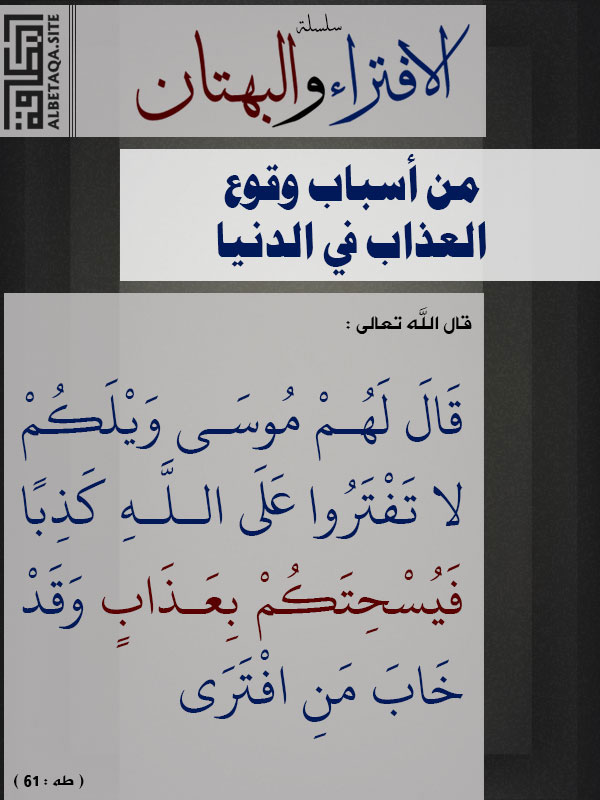 البطاقة
ALBETAQA.SITE
سلسلة
الافتراء والبهتان
من أسباب وقوع
العذاب في الدنيا
قال اللَّه تعالى :
قَالَ لَهُـمْ مُوسَـى وَيْلَكُـمْ
لا تَفْتَرُوا عَلَى الـلَّـهِ كَذِبًا
فَيُسْحِتَكُمْ بِعَـذَابٍ وَقَدْ
خَابَ مَنِ افْتَرَى
( طه : 61 )